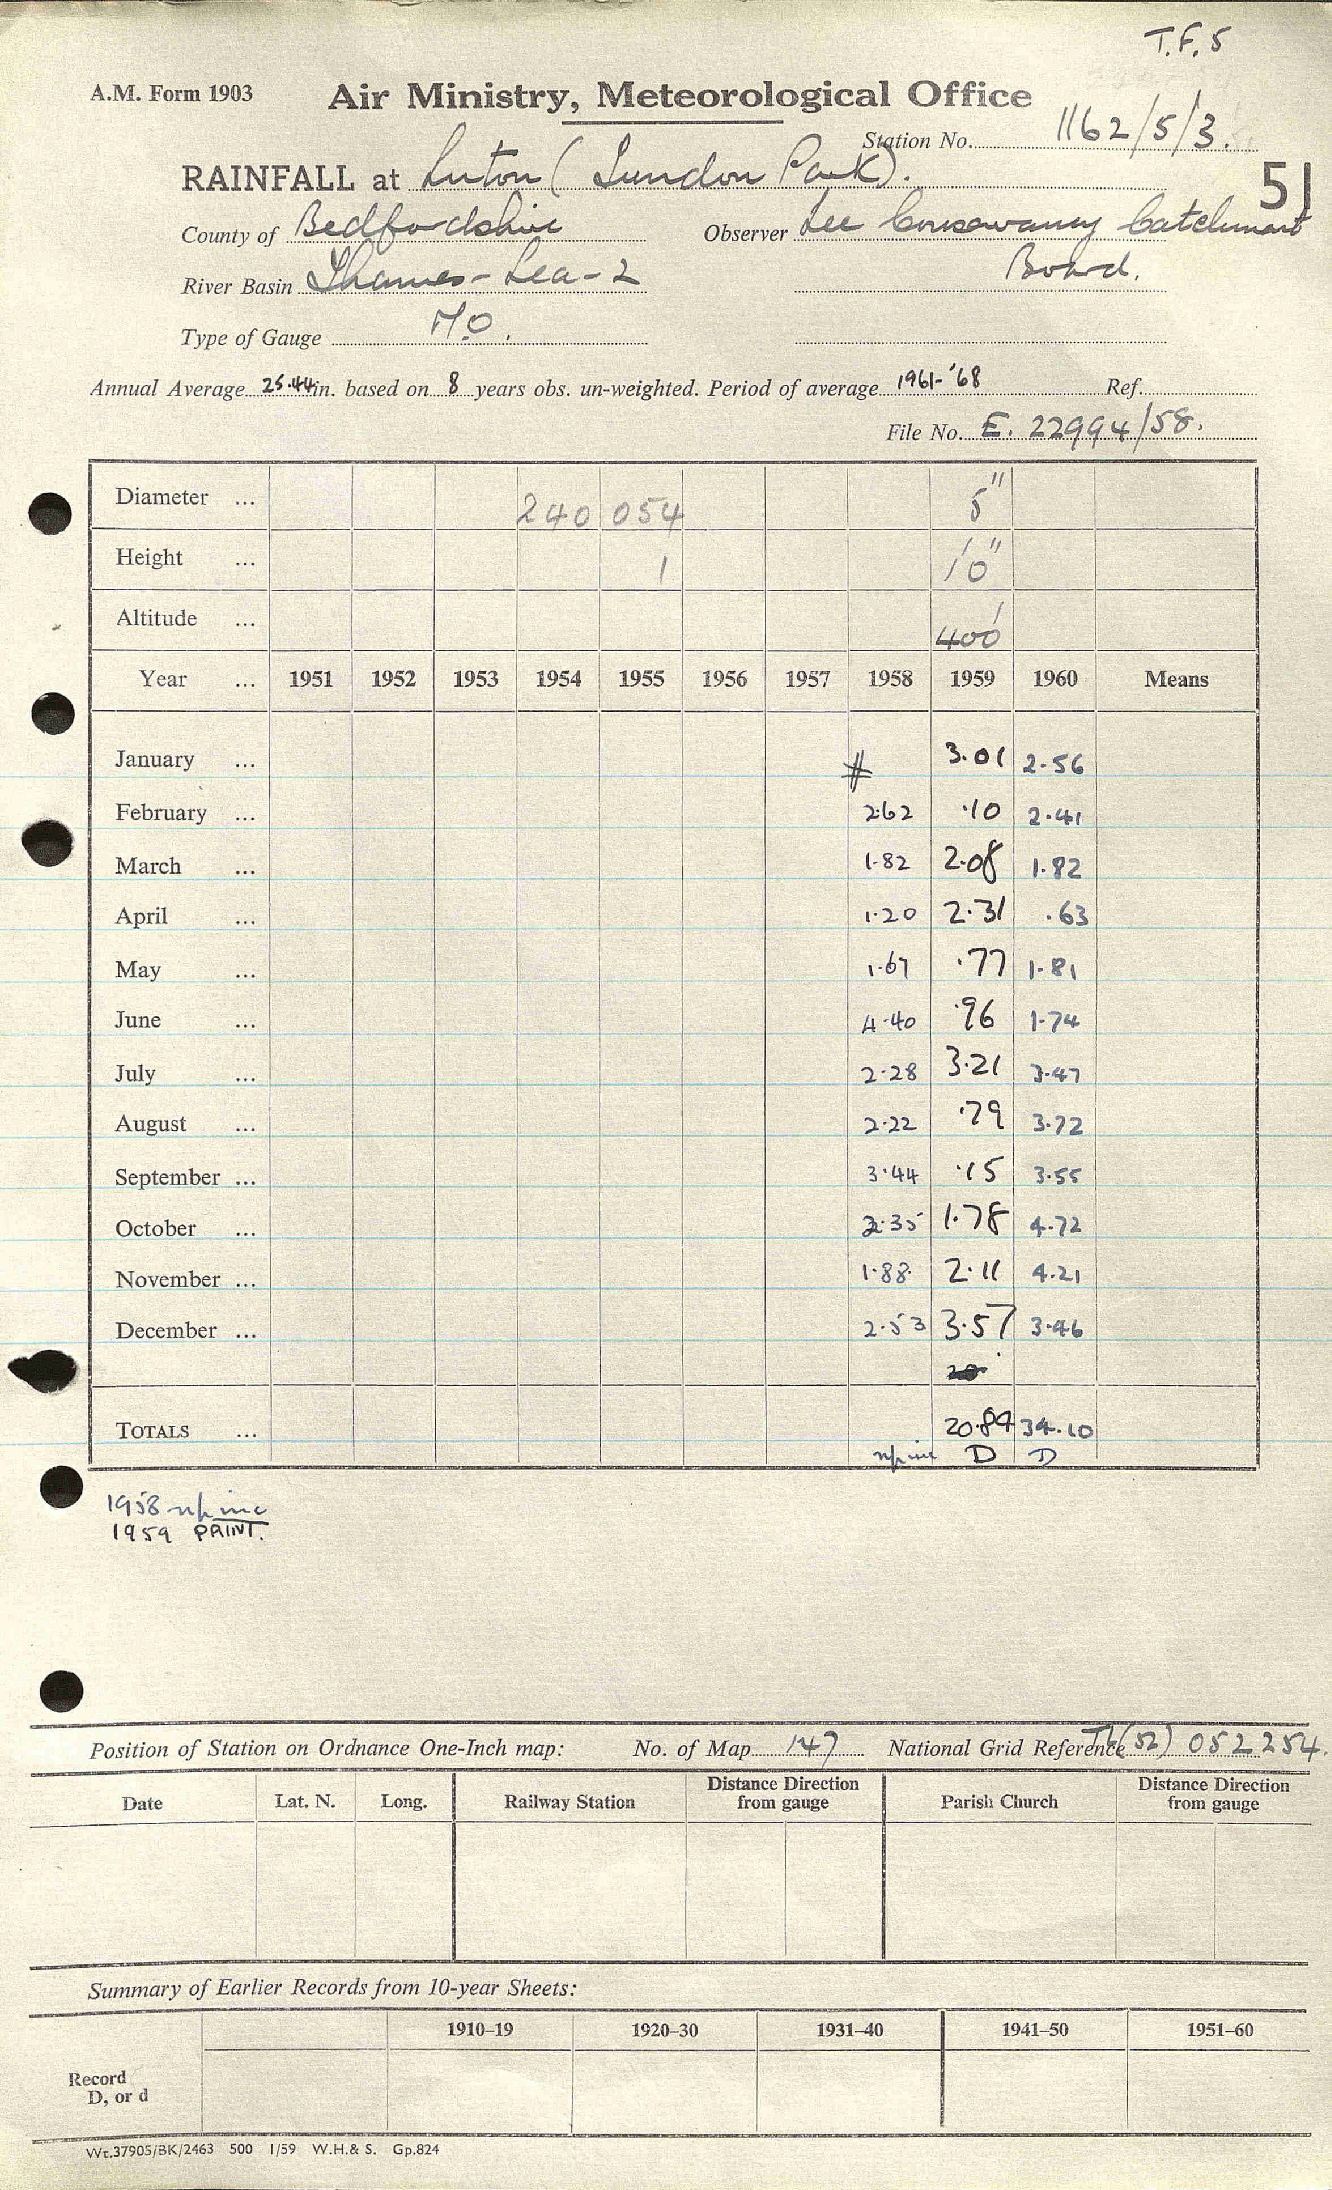 T.F. 5
A.M. Form 1903 Air Ministry, Meteorological Office
Station No. 1162/5/3.
RAINFALL at Luton (Sundon Park).
51
County of Bedfordshire Observer Lee Conservancy Catchment
River Basin Thames - Lea - 2 Board.
Type of Gauge M.O.
Annual Average 25.44 in. based on 8 years obs. un-weighted. Period of average 1961-'68 Ref.
File No. E. 22994/58.
Diameter ... 240 054 5"
Height ... 1 1' 0"
Altitude ... 400'
Year ... 1951 1952 1953 1954 1955 1956 1957 1958 1959 1960 Means
January ... # 3.01 2.56
February ... 2.62 .10 2.41
March ... 1.82 2.08 1.82
April ... 1.20 2.31 .63
May ... 1.67 .77 1.81
June ... 4.40 .96 1.74
July ... 2.28 3.21 3.47
August ... 2.22 .79 3.72
September ... 3.44 .15 3.55
October ... 2.35 1.78 4.72
November ... 1.88 2.11 4.21
December ... 2.53 3.57 3.46
TOTALS ... 20.84 34.10
inc D D
1958 inc
1959 PRINT.
Position of Station on Ordnance One-Inch map: No. of Map 147 National Grid Reference TL(52) 052254.
Date Lat. N. Long. Railway Station Distance Direction from gauge Parish Church Distance Direction from gauge
Summary of Earlier Records from 10-year Sheets:
1910–19 1920–30 1931–40 1941–50 1951–60
Record
D, or d
Wt.37905/BK/2463 500 1/59 W.H.& S. Gp.824